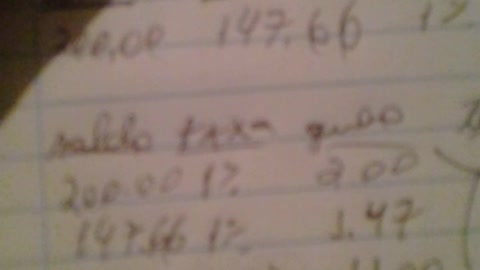 200,00 147.66 1%
saldo taxa
200.00 1% 2.00
147.66 1% 1.47